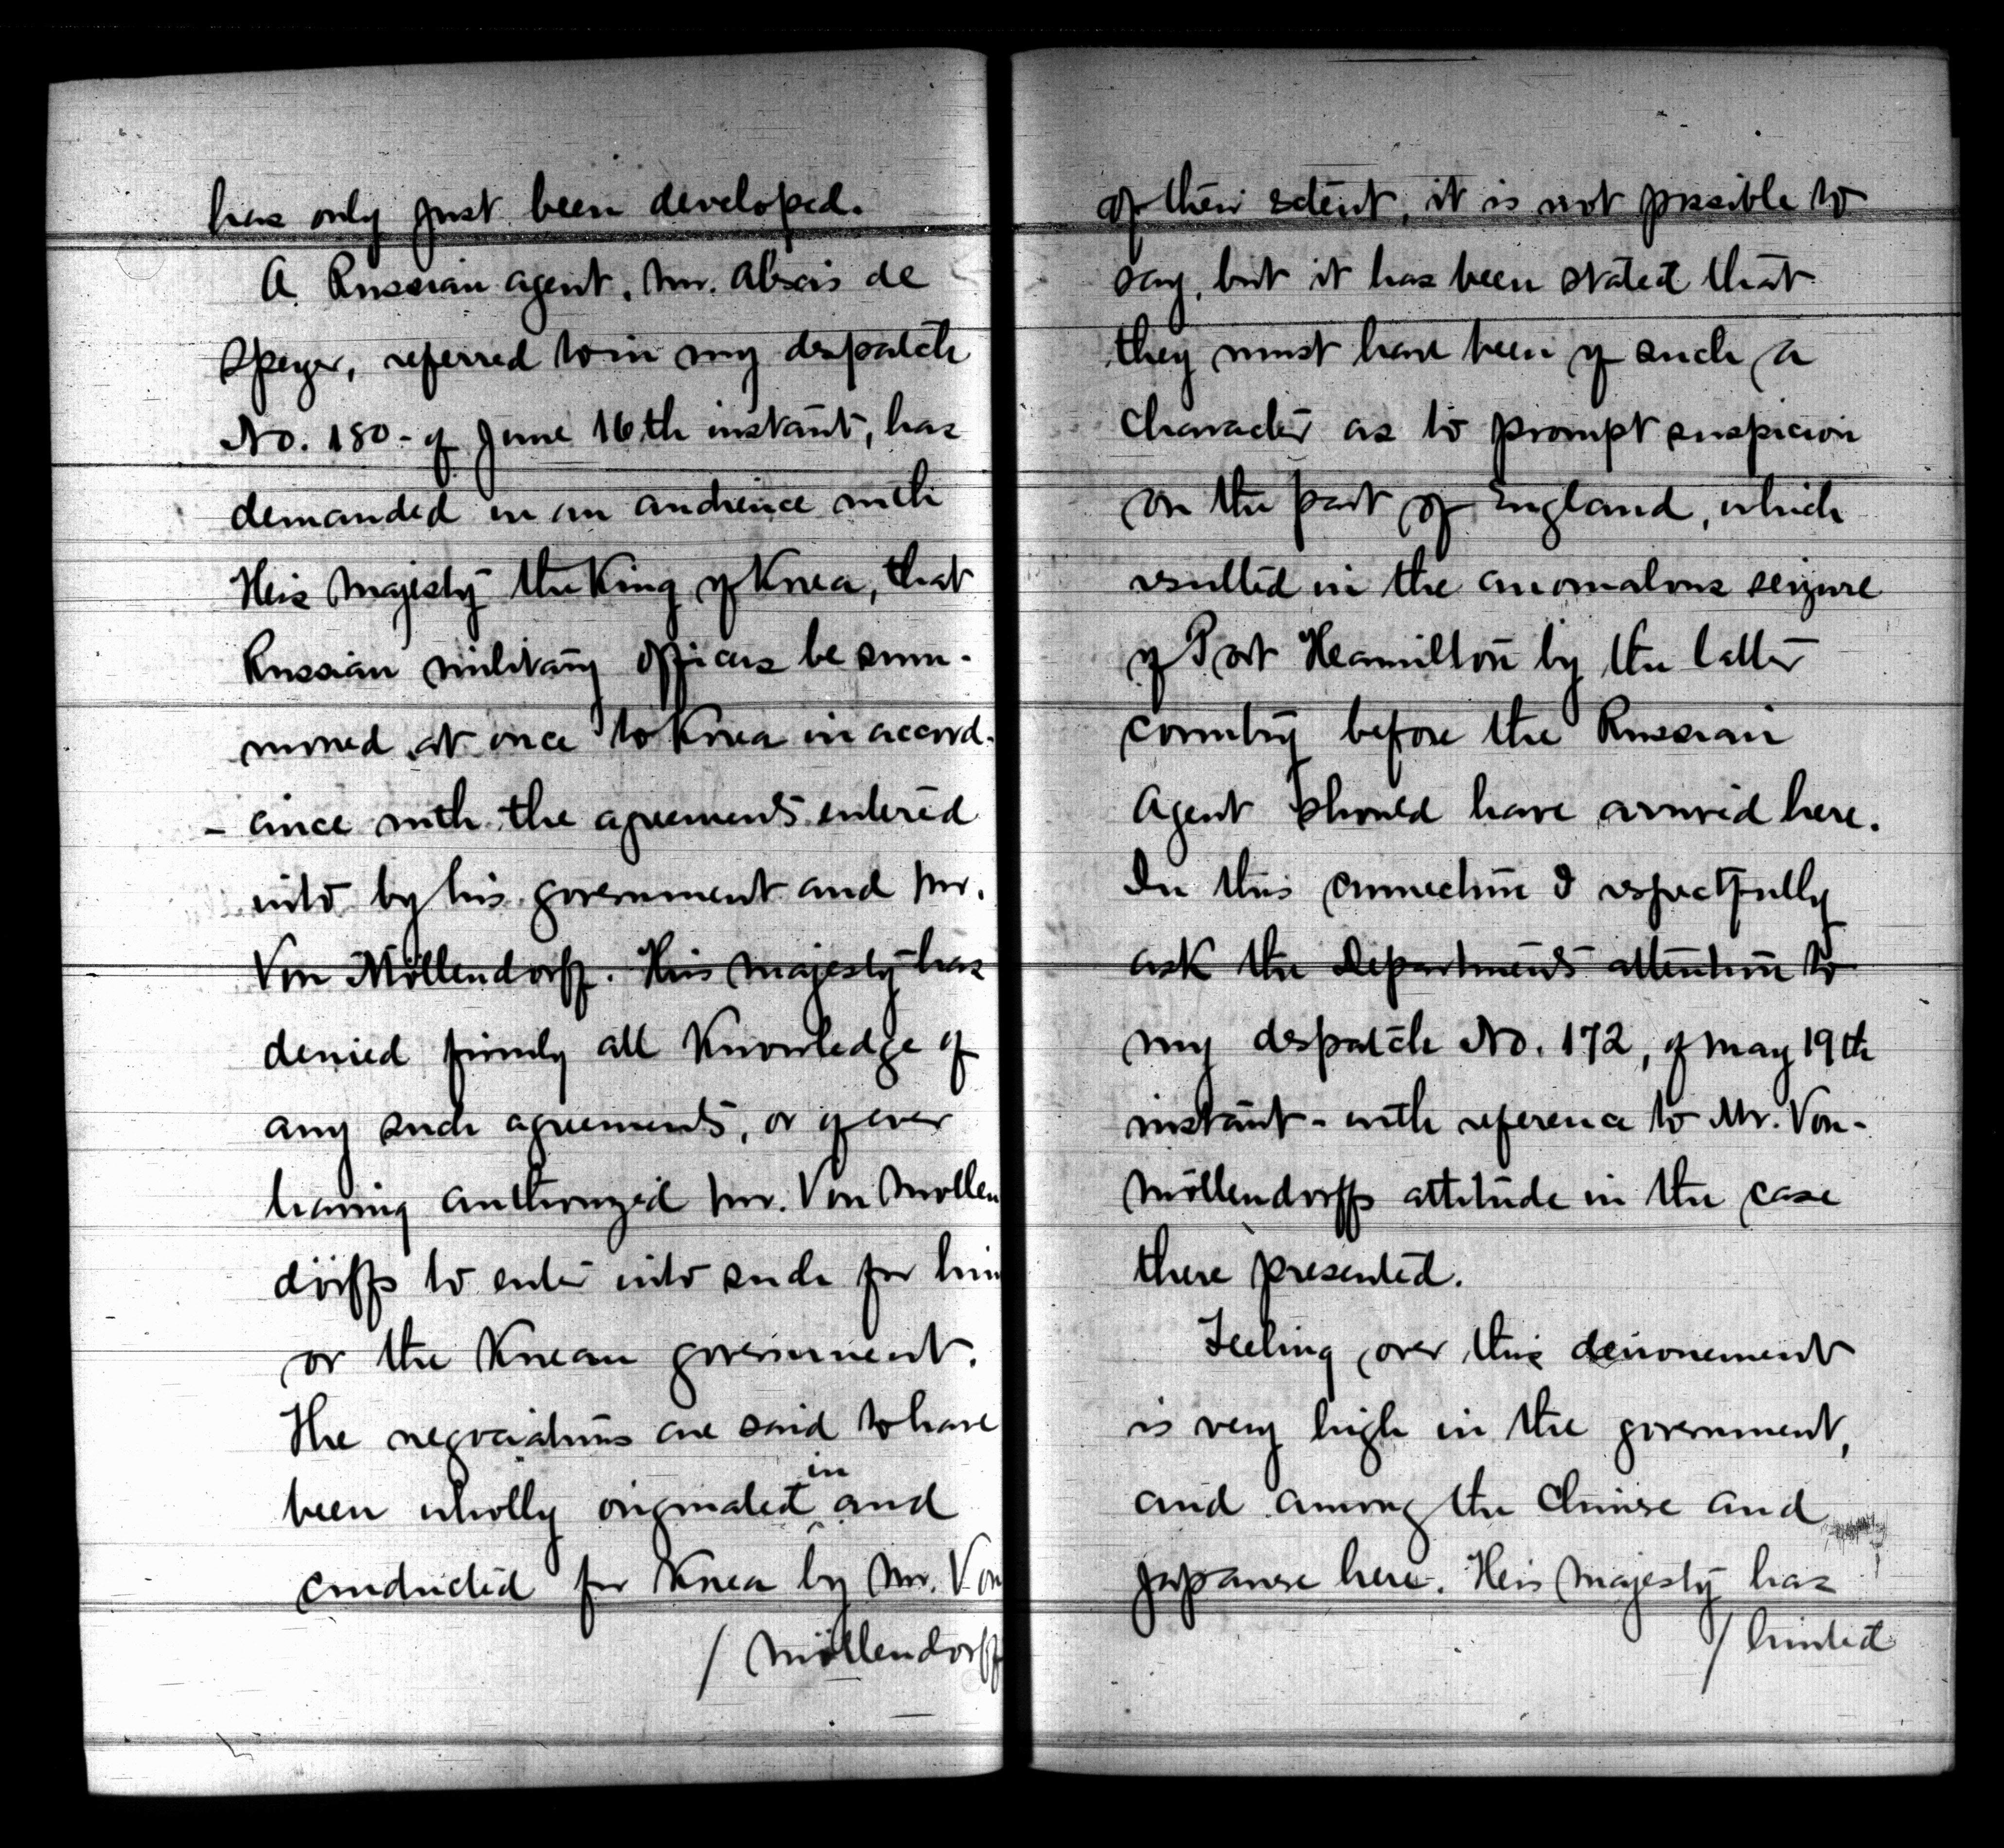 has only just been developed.
A Russian agent, Mr. Alexis de
Speyer, referred to in my despatch
No. 180 - of June 16th instant, has
demanded in an audience with
His Majesty the King of Korea, that
Russian military officers be sum-
moned at once to Korea in accord-
- ance with the agreements entered
into by his government and Mr.
Von Möllendorff. His Majesty has
denied firmly all Knowledge of
any such agreements, or of ever
having authorized Mr. Von Mollen
dörffs to enter into such for him
or the Korean government.
The negociations are said to have
been wholly originated in and
conducted for Korea by Mr. Von
/ Möllendorff
of their extent, it is not possible to
say, but it has been stated that
they must have been of such a
character as to prompt suspicion
on the part of England, which
resulted in the anomalous seizure
of Port Hamilton by the latter
country before the Russian
Agent should have arrived here.
In this connection I respectfully
ask the Departments attention to
my despatch No. 172, of May 19th
instant - with reference to Mr. Von-
Möllendorffs attitude in the case
there presented.
Feeling over this denouement
is very high in the government,
and among the Chinese and
Japanese here. His Majesty has
/ hinted